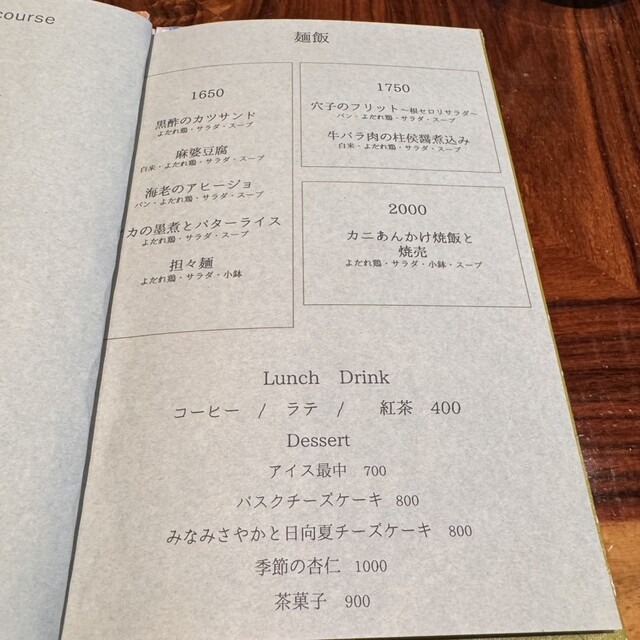 course
麺飯
1650
黒酢のカツサンド
よだれ鶏・サラダ・スープ
麻婆豆腐
白米・よだれ鶏・サラダ・スープ
海老のアヒージョ
パン・よだれ鶏・サラダ・スープ
カの墨煮とバターライス
よだれ鶏・サラダ・スープ
担々麺
よだれ鶏・サラダ・小鉢
1750
穴子のフリット~根セロリサラダ~
パン・よだれ鶏・サラダ・スープ
牛バラ肉の柱侯醤煮込み
白米・よだれ鶏・サラダ・スープ
2000
カニあんかけ焼飯と
焼売
よだれ鶏・サラダ・小鉢・スープ
Lunch Drink
コーヒー / ラテ / 紅茶 400
Dessert
アイス最中 700
バスクチーズケーキ 800
みなみさやかと日向夏チーズケーキ 800
季節の杏仁 1000
茶菓子 900